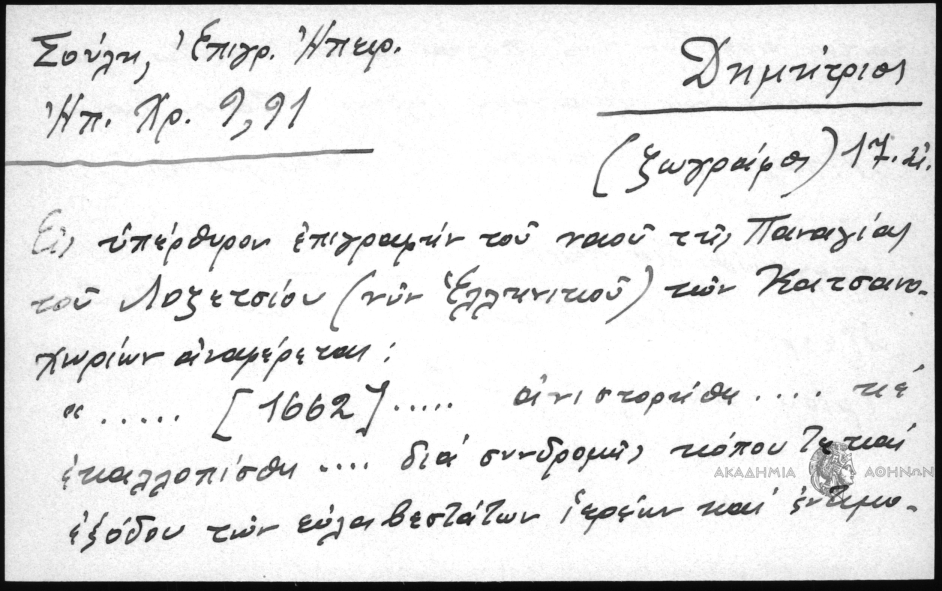 Σούλη, Ἐπιγρ. Ἠπειρ.
Ἠπ. Χρ. 9, 91
Δημήτριος
(ζωγράφος) 17. αἰ.
Εἰς ὑπέρθυρον ἐπιγραφήν τοῦ ναοῦ τῆς Παναγίας
τοῦ Λοζετσίου (νῦν Ἑλληνικοῦ) τῶν Κατσανο-
χωρίων ἀναφέρεται:
"..... [1662]..... ἀνιστορήθη .... κέ
ἐκαλλοπίσθη .... διά συνδρομῆς κόπου τε καί
ἐξόδου τῶν εὐλαβεστάτων ἱερέων καί ἐντιμο-
ΑΚΑΔΗΜΙΑ ΑΘΗΝΩΝ